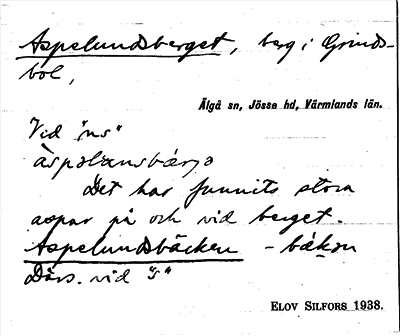 Aspelundsberget, berg i Grinds-
bol,
Älgå sn, Jösse hd, Värmlands län.
Vid "ns"
Det har funnits stora
aspar på och vid berget.
Aspelundsbäcken - bäken
Därs. vid "s"
ELOV SILFORS 1938.